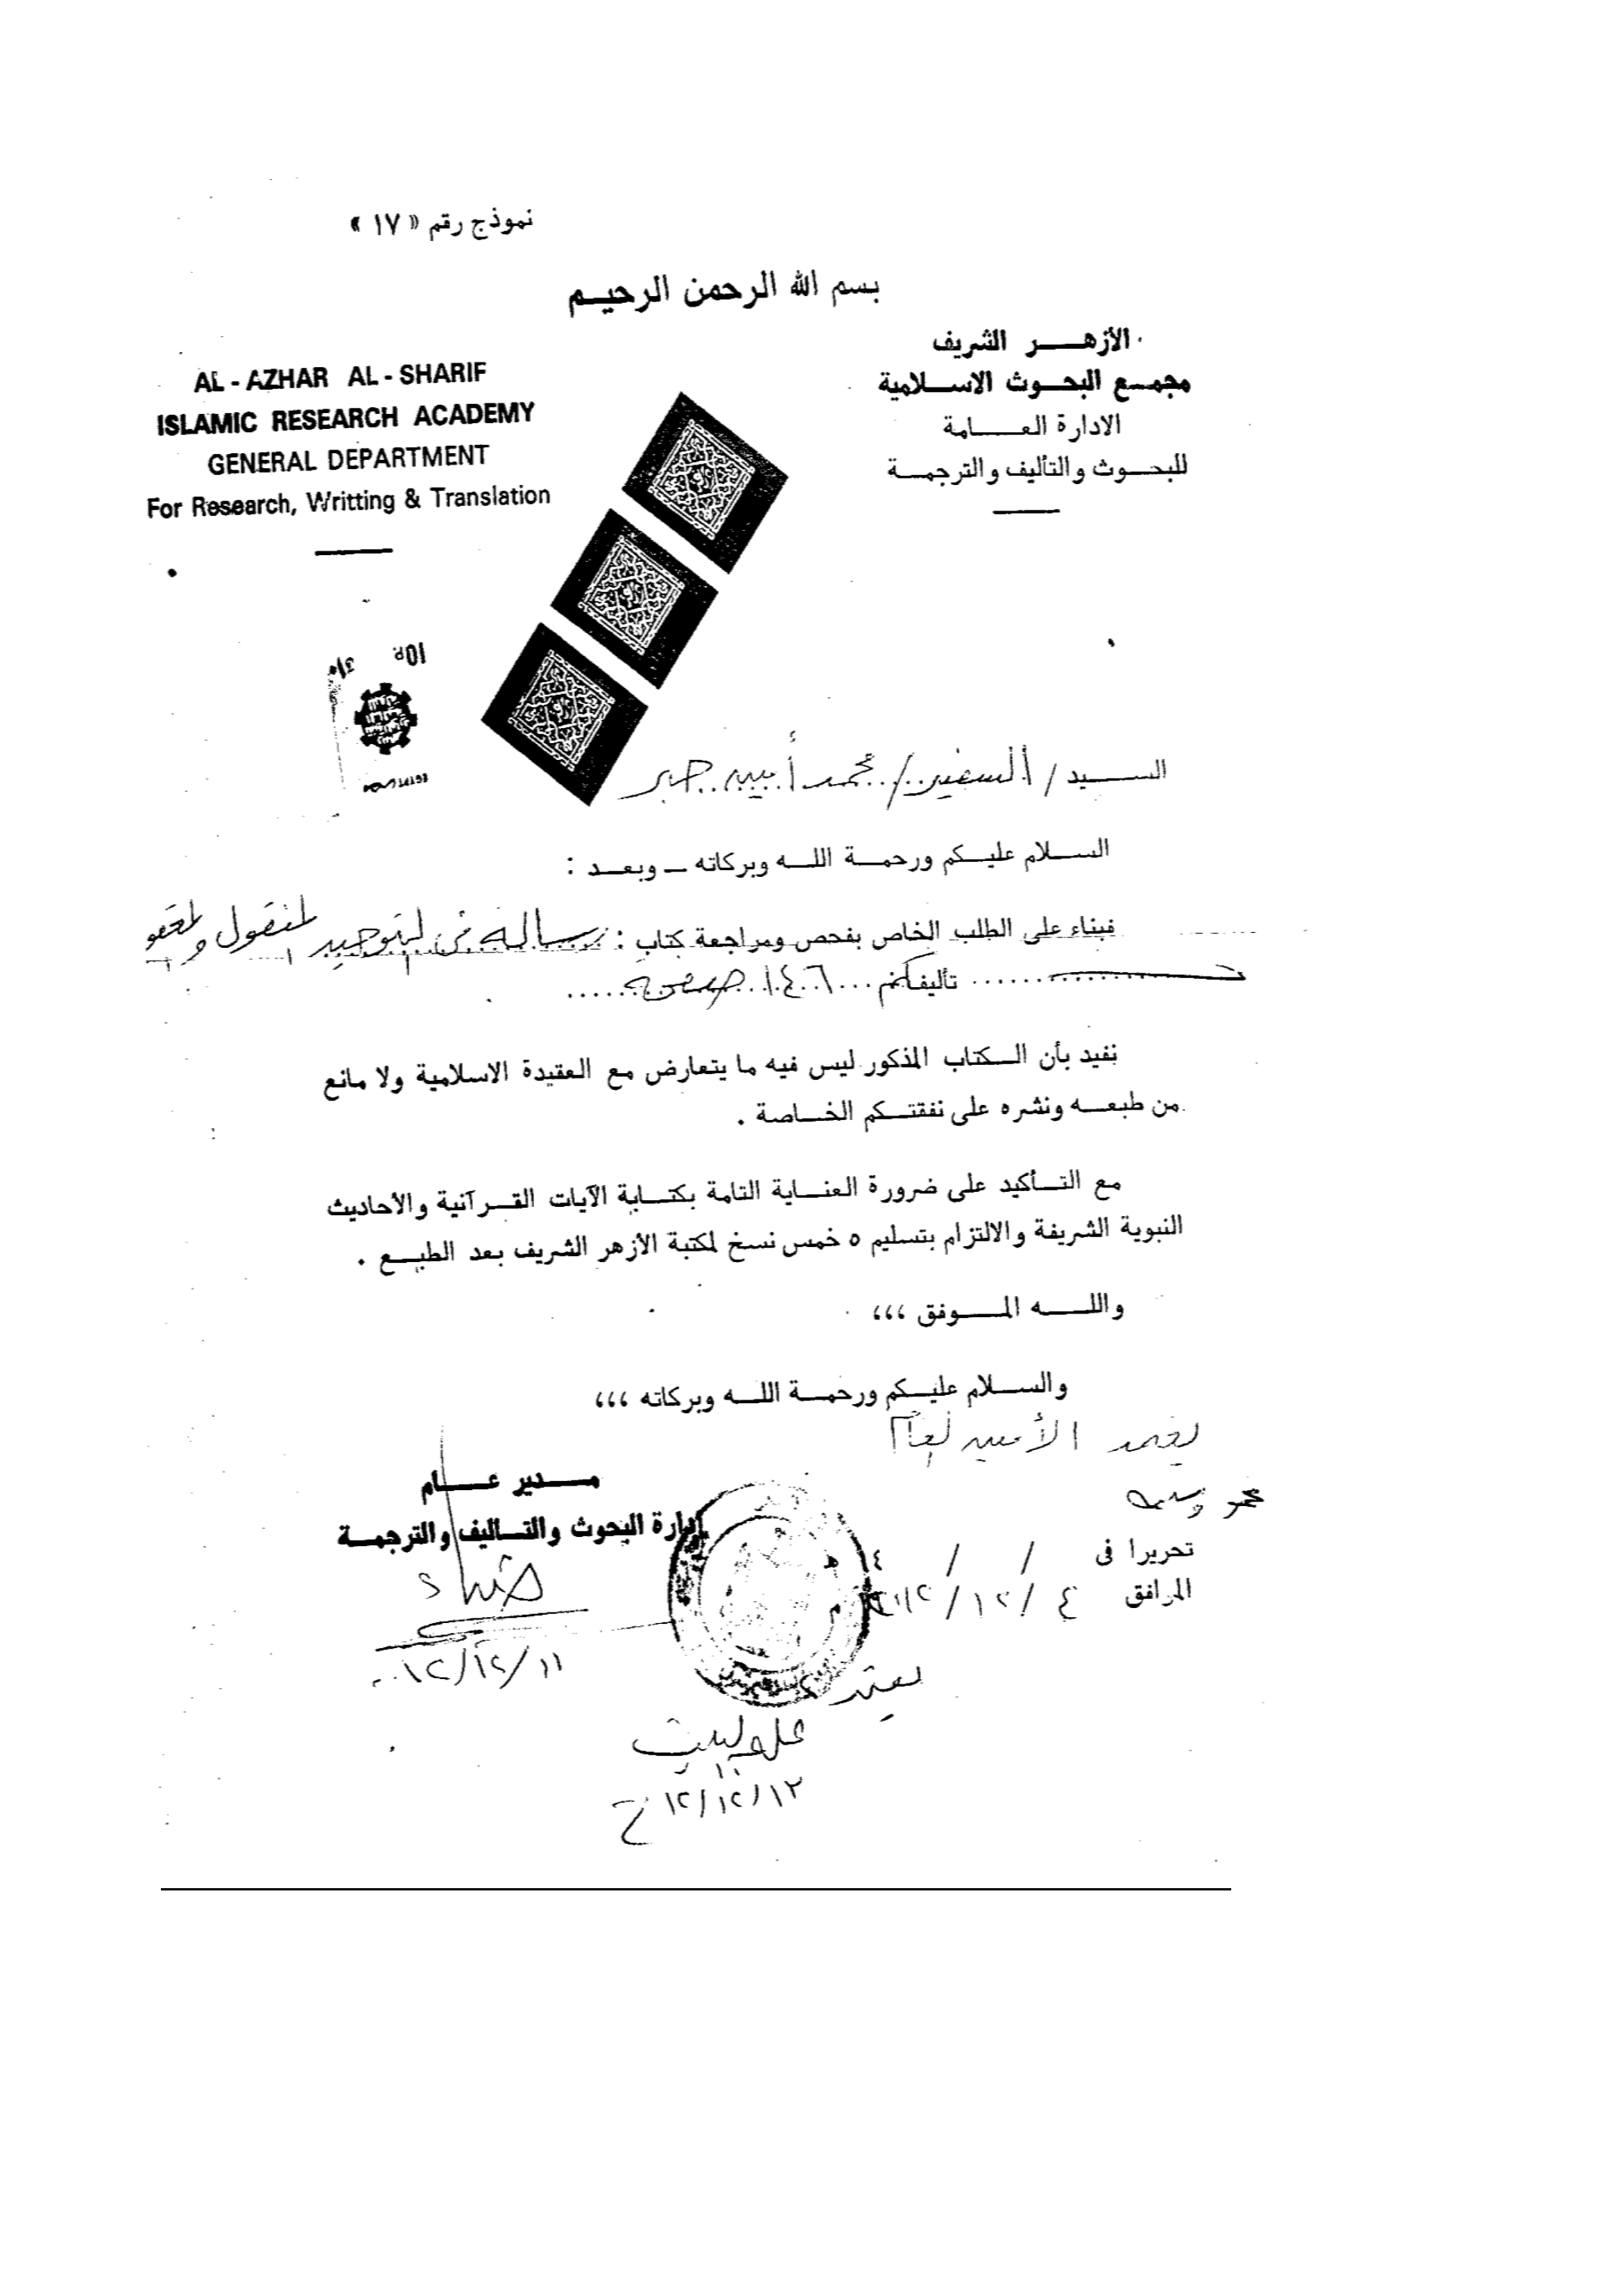 نموذج رقم « ١٧ »
بسم الله الرحمن الرحيم
الأزهر الشريف
مجمع البحوث الاسلامية
الادارة العامة
للبحوث والتأليف والترجمة
AL - AZHAR AL - SHARIF
ISLAMIC RESEARCH ACADEMY
GENERAL DEPARTMENT
For Research, Writting & Translation
10P
السيد / السفير / محمد أمين جبر
السلام عليكم ورحمة الله وبركاته – وبعد :
فبناء على الطلب الخاص بفحص ومراجعة كتاب : رسالة في التوحيد المنقول و
تأليفكم ١٤٠٦ صفحة
نفيد بأن الكتاب المذكور ليس فيه ما يتعارض مع العقيدة الاسلامية ولا مانع
من طبعه ونشره على نفقتكم الخاصة .
مع التأكيد على ضرورة العناية التامة بكتابة الآيات القرآنية والأحاديث
النبوية الشريفة والالتزام بتسليم ٥ خمس نسخ لمكتبة الأزهر الشريف بعد الطبع .
والله الموفق ،،،
والسلام عليكم ورحمة الله وبركاته ،،،
يعتمد الأمين العام
مدير عام
إدارة البحوث والتأليف والترجمة
تحريرا فى / / ١٤ هـ
المرافق ٤ / ١٢ / م
١١/١٢/
يعتمد
١٢/١٢/١٣